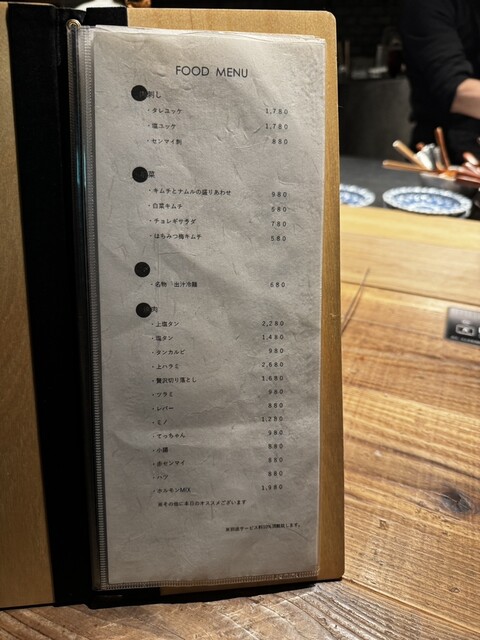 FOOD MENU
刺し
・タレユッケ 1,780
・塩ユッケ 1,780
・センマイ刺 880
菜
・キムチとナムルの盛りあわせ 980
・白菜キムチ 580
・チョレギサラダ 780
・はちみつ梅キムチ 580
・名物 出汁冷麺 680
肉
・上塩タン 2,280
・塩タン 1,480
・タンカルビ 980
・上ハラミ 2,680
・贅沢切り落とし 1,680
・ツラミ 980
・レバー 880
・ミノ 1,280
・てっちゃん 980
・小腸 880
・赤センマイ 880
・ハツ 880
・ホルモンMIX 1,980
※その他に本日のオススメございます